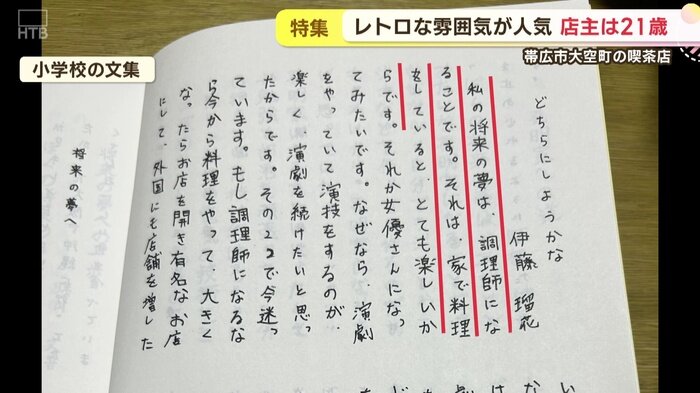 HTB
特集
レトロな雰囲気が人気 店主は21歳
帯広市大空町の喫茶店
小学校の文集
どちらにしようかな
伊藤 瑠花
私の将来の夢は、調理師にな
ることです。それは、家で料理
をしていると、とても楽しいか
らです。それか女優さんになっ
てみたいです。なぜなら、演劇
をやっていて演技をするのが、
楽しく演劇を続けたいと思っ
たからです。その2つで今迷っ
ています。もし調理師になるな
ら今から料理をやって、大きく
なったらお店を開き有名なお店
にして、外国にも店舗を増した
将来の夢へ